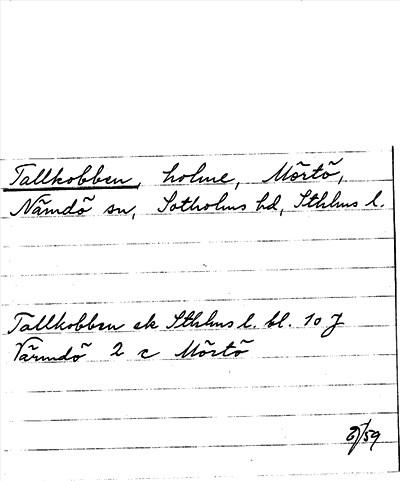 Tallkobben, holme, Mörtö,
Nämdö sn, Sotholms hd, Sthlms l.
Tallkobben ek Sthlms l. bl. 10 J
Värmdö 2 c Mörtö
/59